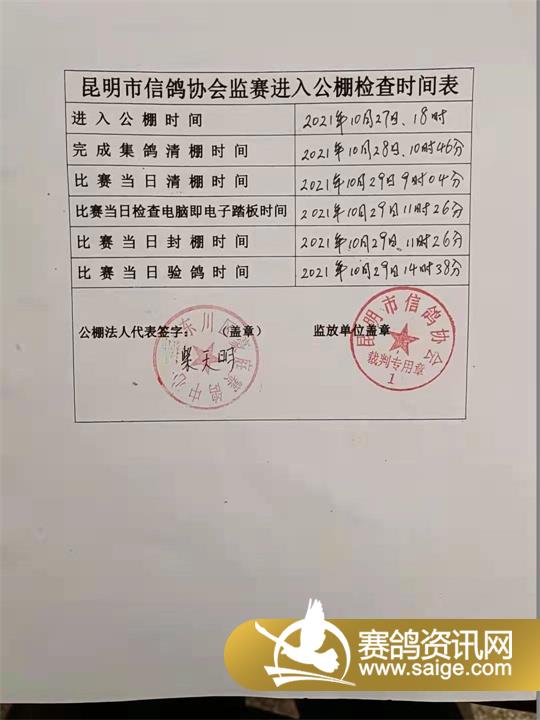 昆明市信鸽协会监赛进入公棚检查时间表
进入公棚时间 2021年10月27日、18时
完成集鸽清棚时间 2021年10月28日、10时46分
比赛当日清棚时间 2021年10月29日9时04分
比赛当日检查电脑即电子踏板时间 2021年10月29日11时26分
比赛当日封棚时间 2021年10月29日、11时26分
比赛当日验鸽时间 2021年10月29日14时38分
公棚法人代表签字： （盖章） 监放单位盖章
柴天明
东川区
赛鸽中心
昆明市信鸽协会
裁判专用章
1
赛鸽资讯网
www.saige.com